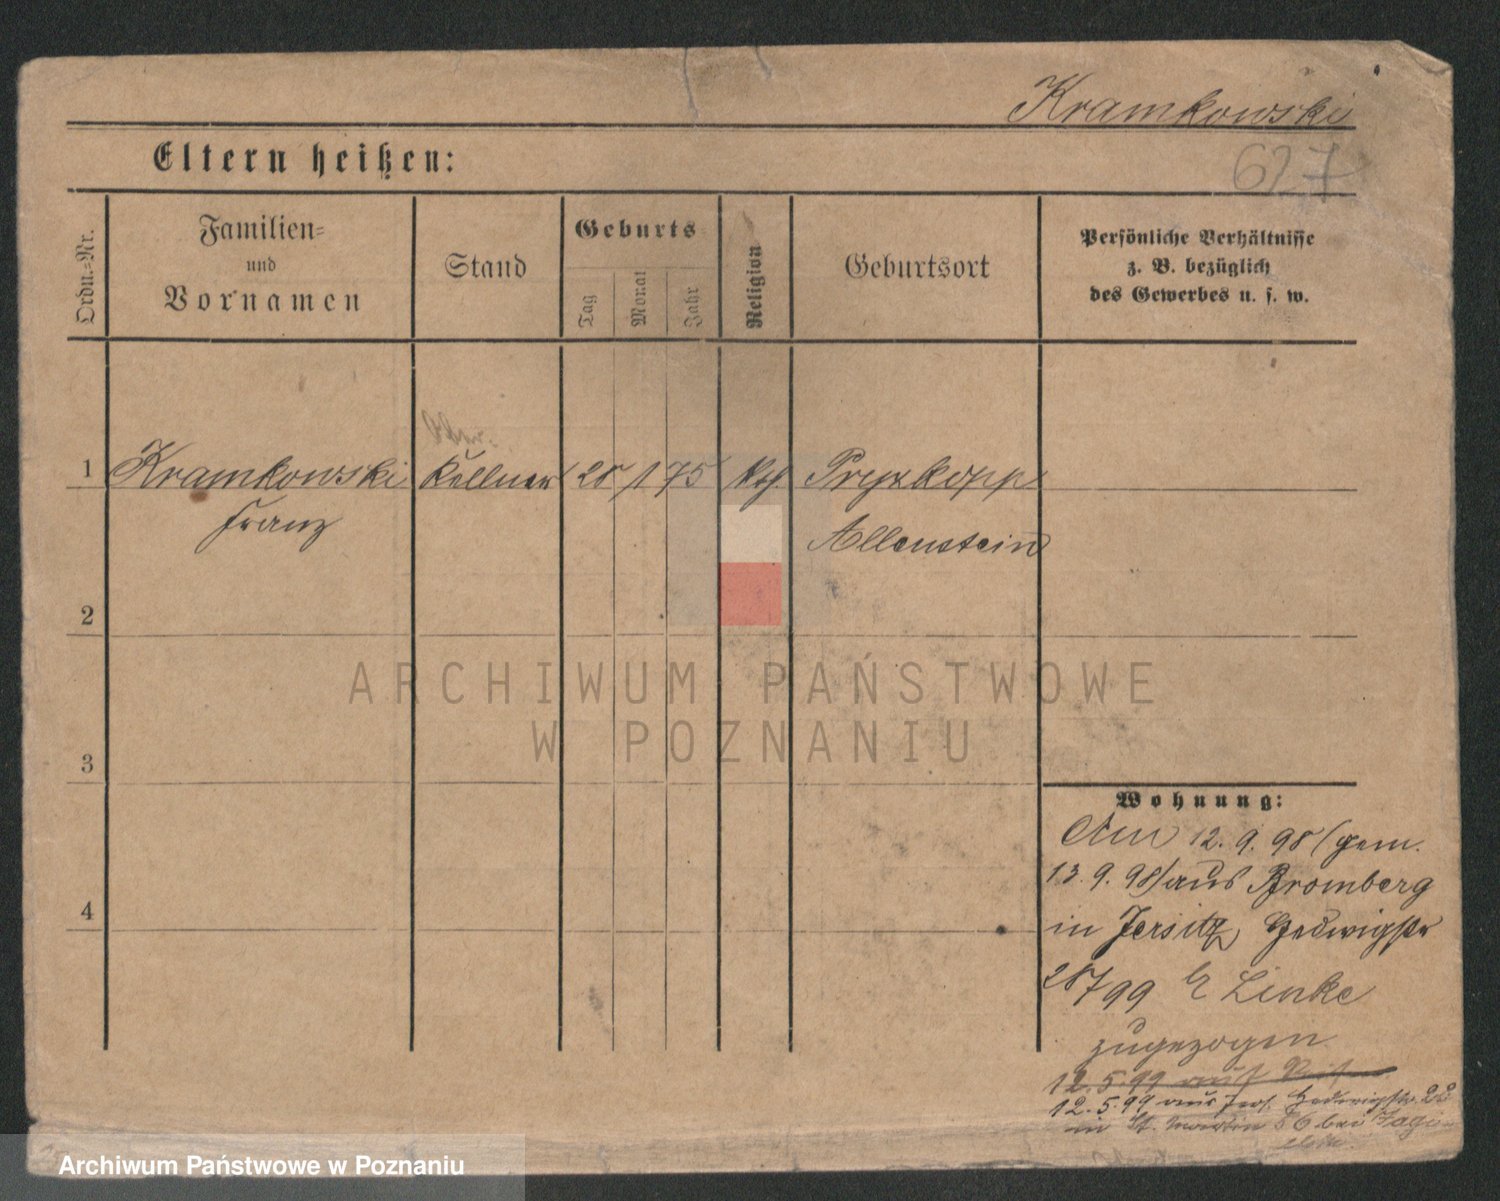 Kramkowski
Eltern heißen:
627
Ordn.=Nr.
Familien=
und
Vornamen
Stand
Geburts
Tag
Monat
Jahr
Religion
Geburtsort
Persönliche Verhältnisse
z. B. bezüglich
des Gewerbes u. s. w.
Ober-
1 Kramkowski Kellner 28 1 75 kth. Pryzkopp
Franz
Allenstein
2
ARCHIWUM PAŃSTWOWE
W POZNANIU
3
Wohnung:
Am 12. 9. 98 (gem.
13. 9. 98) aus Bromberg
4
in Jersitz, Hedwigstr
28/99 b Linke
zugezogen
12.5.99 auf
12.5.99 aus Jers. Hedwigstr. 28
in St. Martin 56 bei
Archiwum Państwowe w Poznaniu